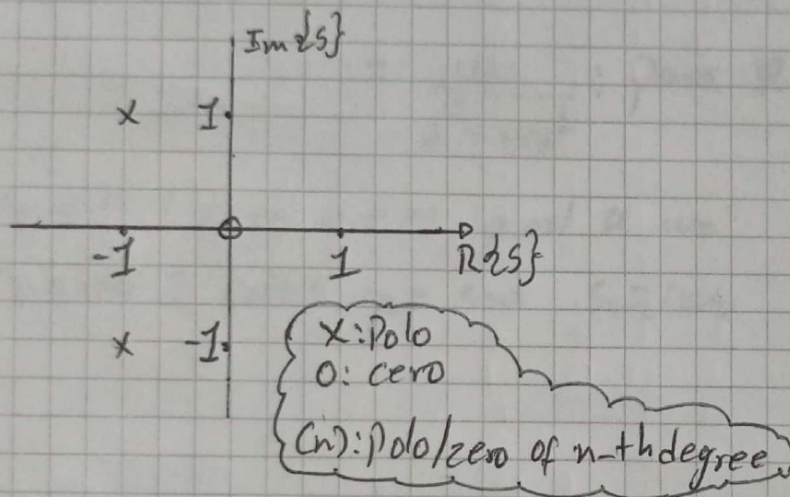 Im{s}
x 1
-1 1 R{s}
x -1
x: Polo
o: cero
(n): Polo/zero of n-th degree